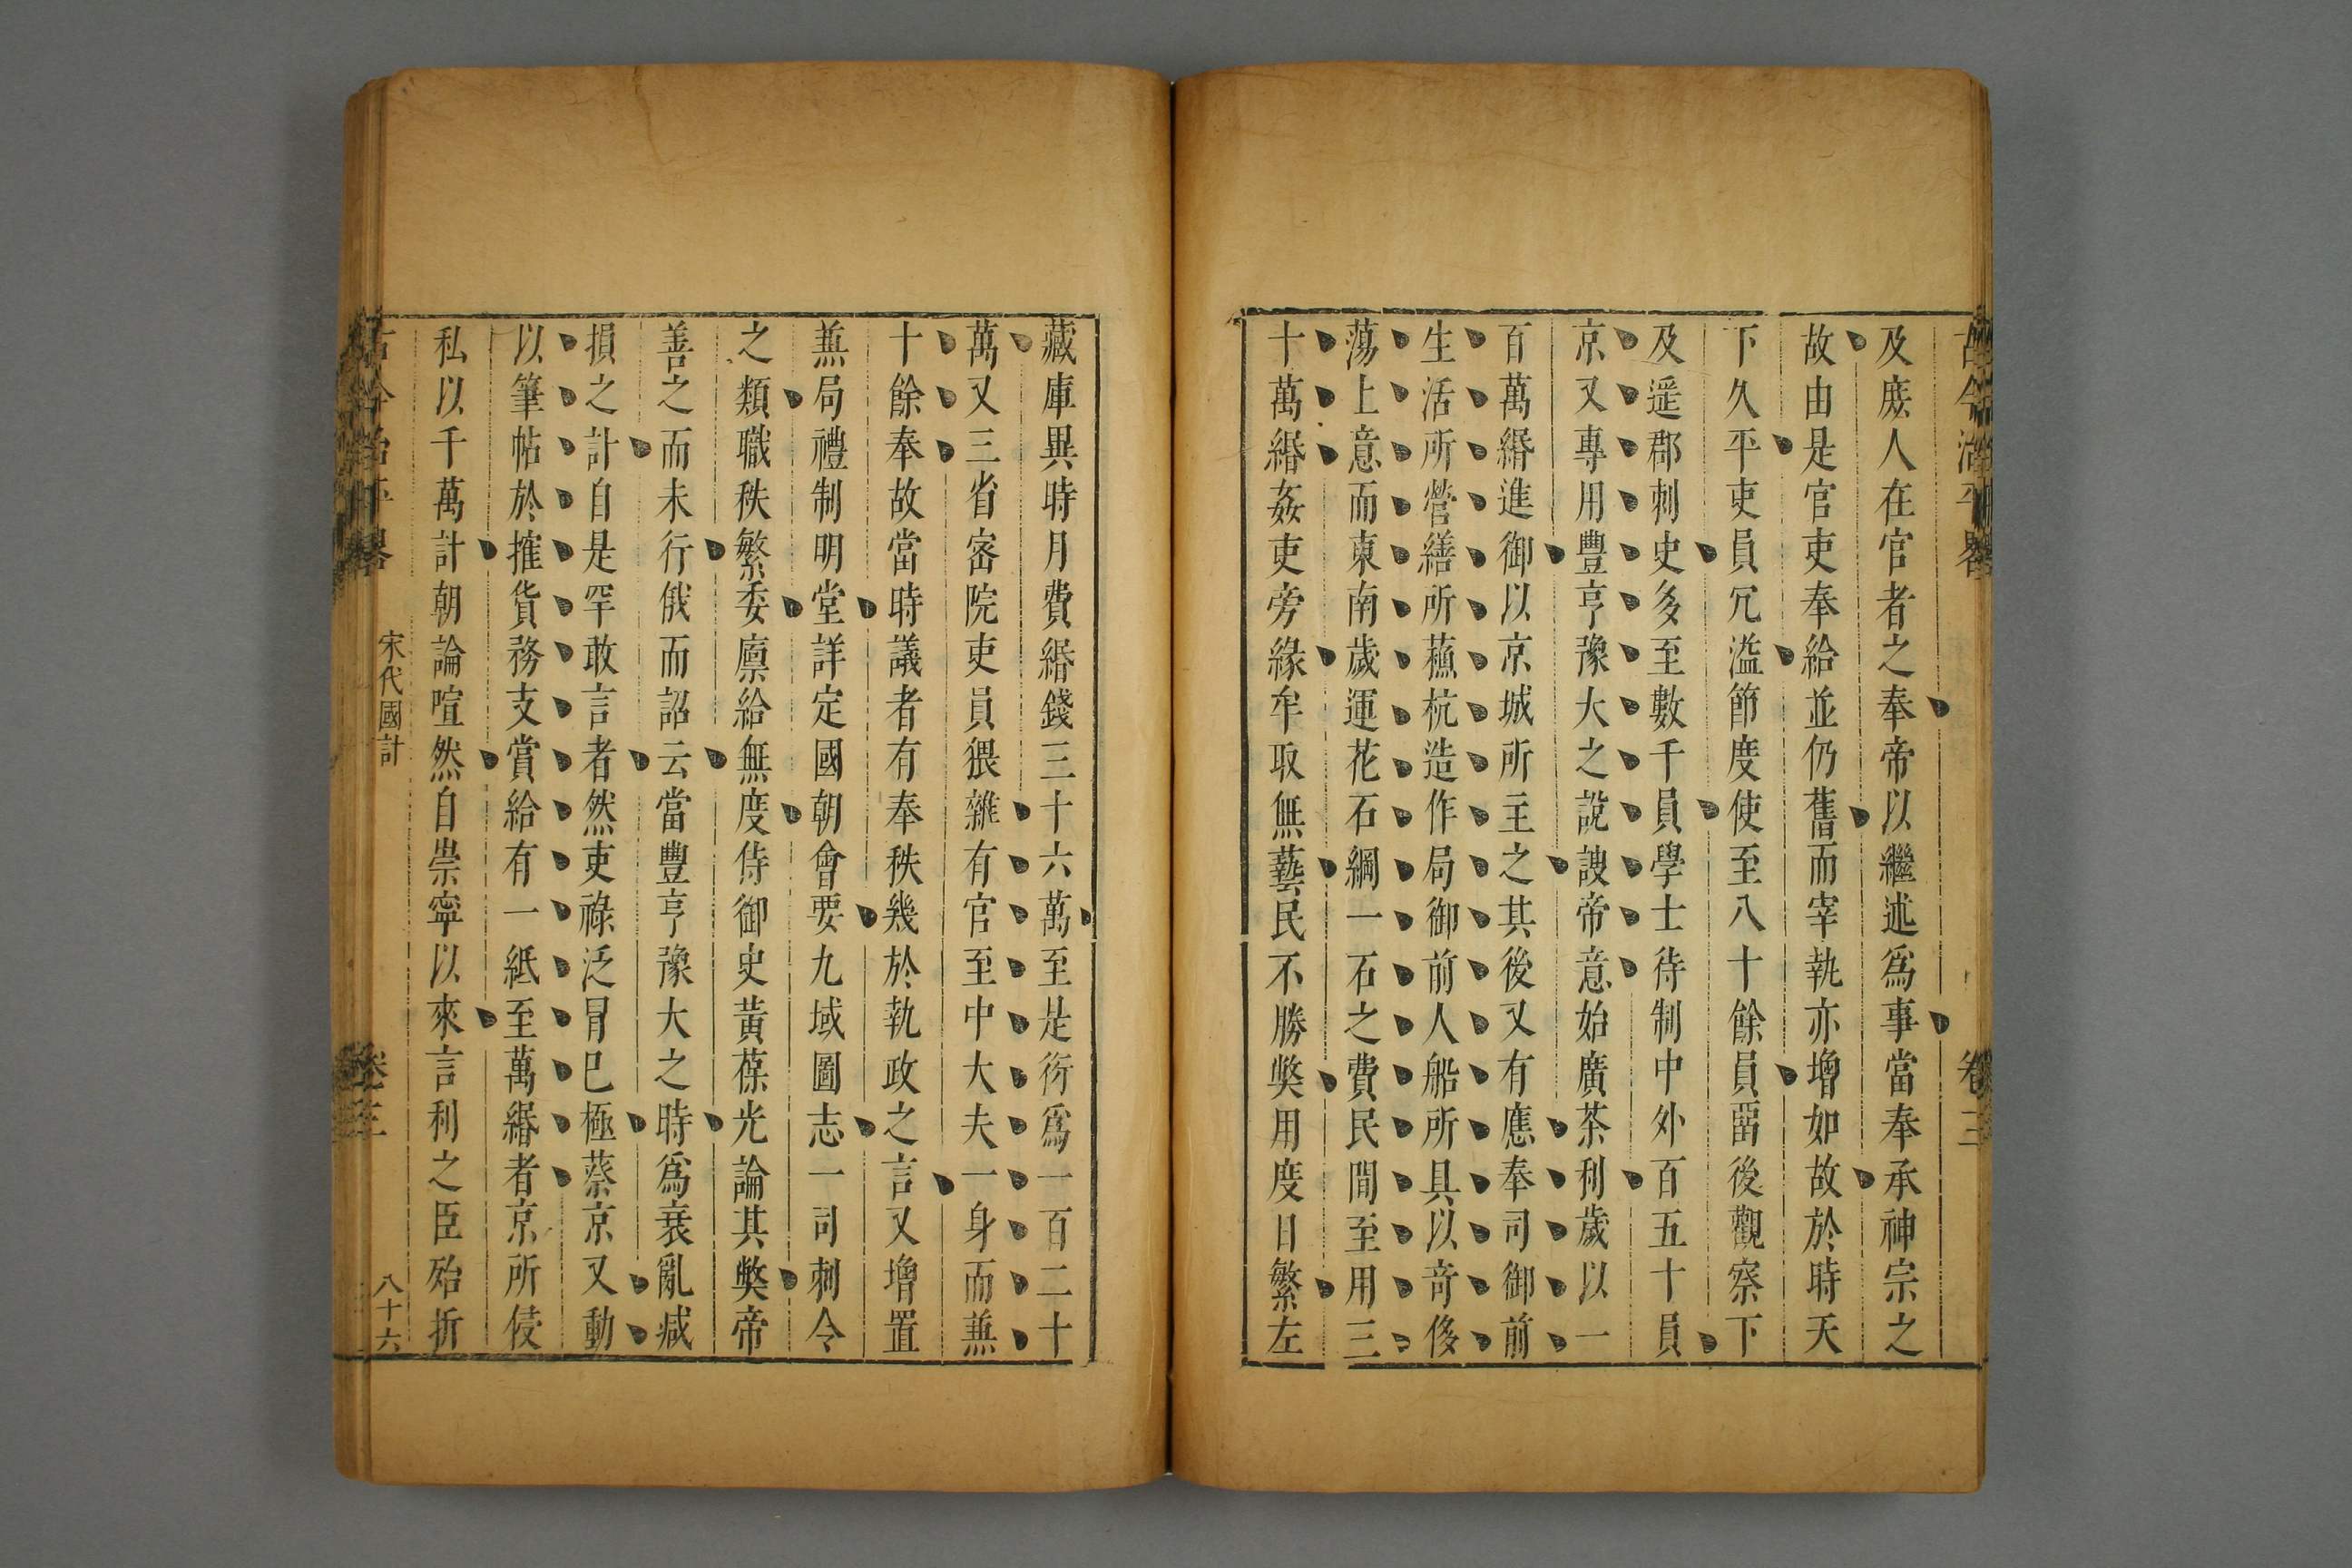 古今治平畧 卷三
及庶人在官者之奉帝以繼述爲事當奉承神宗之
故由是官吏奉給並仍舊而宰執亦增如故於時天
下久平吏員冗溢節度使至八十餘員畱後觀察下
及遥郡刺史多至數千員學士待制中外百五十員
京又專用豐亨豫大之說諛帝意始廣茶利歲以一
百萬緡進御以京城所主之其後又有應奉司御前
生活所營繕所蘓杭造作局御前人船所具以竒侈
蕩上意而東南歲運花石綱一石之費民間至用三
十萬緡姦吏旁緣牟取無藝民不勝獘用度日繁左
藏庫異時月費緡錢三十六萬至是衍爲一百二十
萬又三省宻院吏員猥雜有官至中大夫一身而兼
十餘奉故當時議者有奉秩幾於執政之言又增置
兼局禮制明堂詳定國朝會要九域圖志一司刺令
之類職秩繁委廩給無度侍御史黃葆光論其獘帝
善之而未行俄而詔云當豐亨豫大之時爲衰亂减
損之計自是罕敢言者然吏祿泛冒已極蔡京又動
以筆帖於搉貨務支賞給有一紙至萬緡者京所侵
私以千萬計朝論喧然自崇寧以來言利之臣殆折
古今治平畧 宋代國計 卷三 八十六